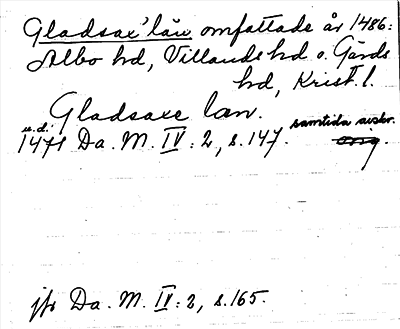 Gladsax' län omfattade år 1486:
Albo hd, Villands hd o. Gärds
hd, Krist. l.
Gladsaxe lan.
u.d. samtida avskr.
1471 Da. M. IV: 2, s. 147. orig.
jfr Da. M. IV: 2, s. 165.